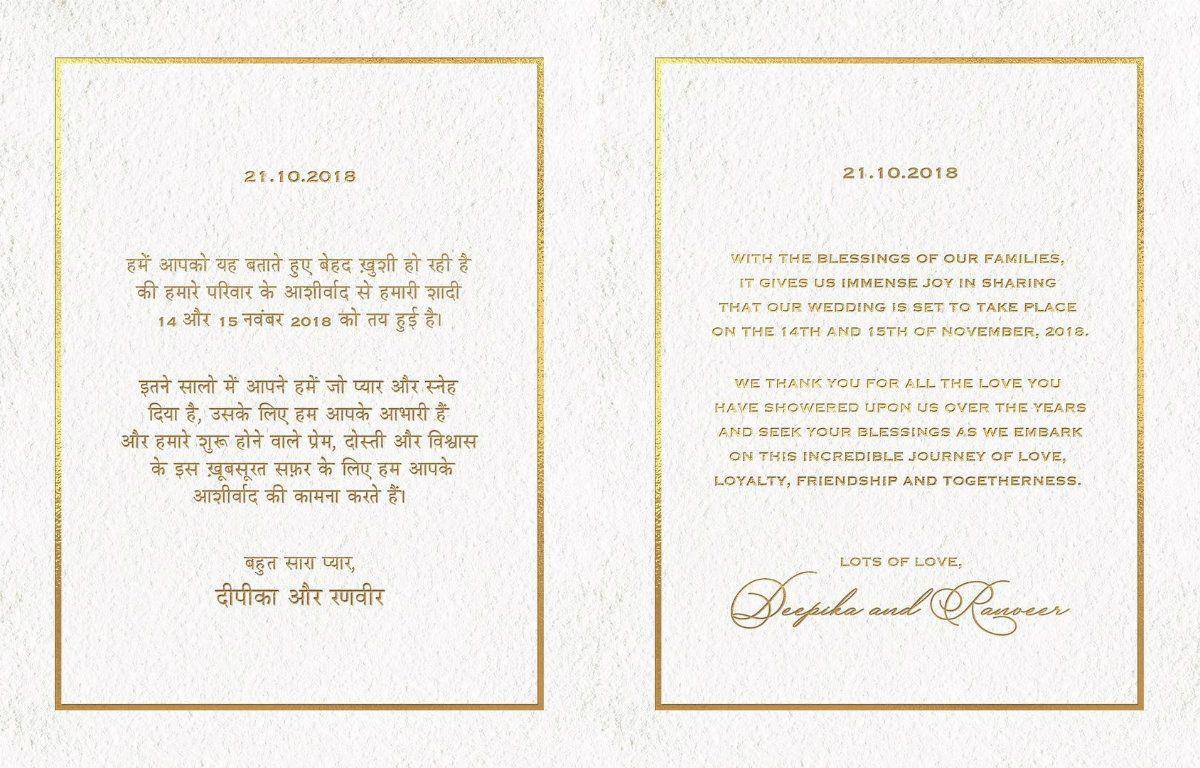 21.10.2018
हमें आपको यह बताते हुए बेहद ख़ुशी हो रही है
की हमारे परिवार के आशीर्वाद से हमारी शादी
14 और 15 नवंबर 2018 को तय हुई है।
इतने सालो में आपने हमें जो प्यार और स्नेह
दिया है, उसके लिए हम आपके आभारी हैं
और हमारे शुरू होने वाले प्रेम, दोस्ती और विश्वास
के इस ख़ूबसूरत सफ़र के लिए हम आपके
आशीर्वाद की कामना करते हैं।
बहुत सारा प्यार,
दीपीका और रणवीर
21.10.2018
WITH THE BLESSINGS OF OUR FAMILIES,
IT GIVES US IMMENSE JOY IN SHARING
THAT OUR WEDDING IS SET TO TAKE PLACE
ON THE 14TH AND 15TH OF NOVEMBER, 2018.
WE THANK YOU FOR ALL THE LOVE YOU
HAVE SHOWERED UPON US OVER THE YEARS
AND SEEK YOUR BLESSINGS AS WE EMBARK
ON THIS INCREDIBLE JOURNEY OF LOVE,
LOYALTY, FRIENDSHIP AND TOGETHERNESS.
LOTS OF LOVE,
Deepika and Ranveer